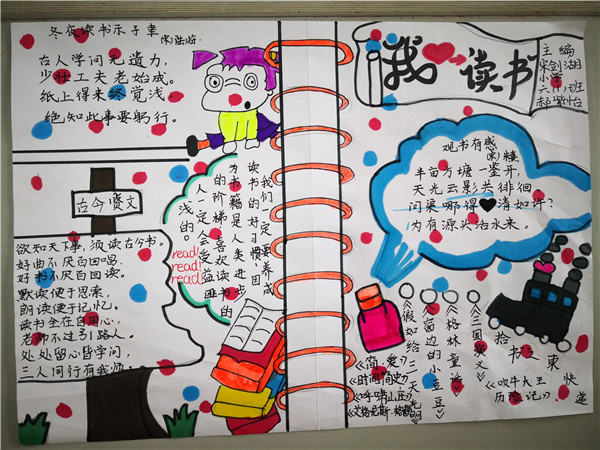 冬夜读书示子聿
(宋)陆游
古人学问无遗力,
少壮工夫老始成。
纸上得来终觉浅
绝知此事要躬行。
古今贤文
欲知天下事,须读古今书。
好曲不厌百回唱,
好书不厌百回读。
默读便于思索,
朗读便于记忆。
读书全在自用心,
老师不过引路人。
处处留心皆学问,
三人同行有我师。
我们一定要养成
读书的好习惯,因
为书籍是人类进步
的阶梯,喜欢读书的
人一定会受益匪
浅的。
read!
read!
read!
我 读书
主编
宋剑湖
小学
六(1)班
郝紫怡
观书有感
(宋)朱熹
半亩方塘一鉴开,
天光云影共徘徊。
问渠哪得 清如许?
内有源头活水来。
《假如给三天光明》
《窗边的小豆豆》
《格林童话》
《三国演义》
《简,爱》
《时间简史》
《呼啸山庄》
《吹牛大王
历险记》
拾
书
之
快
递